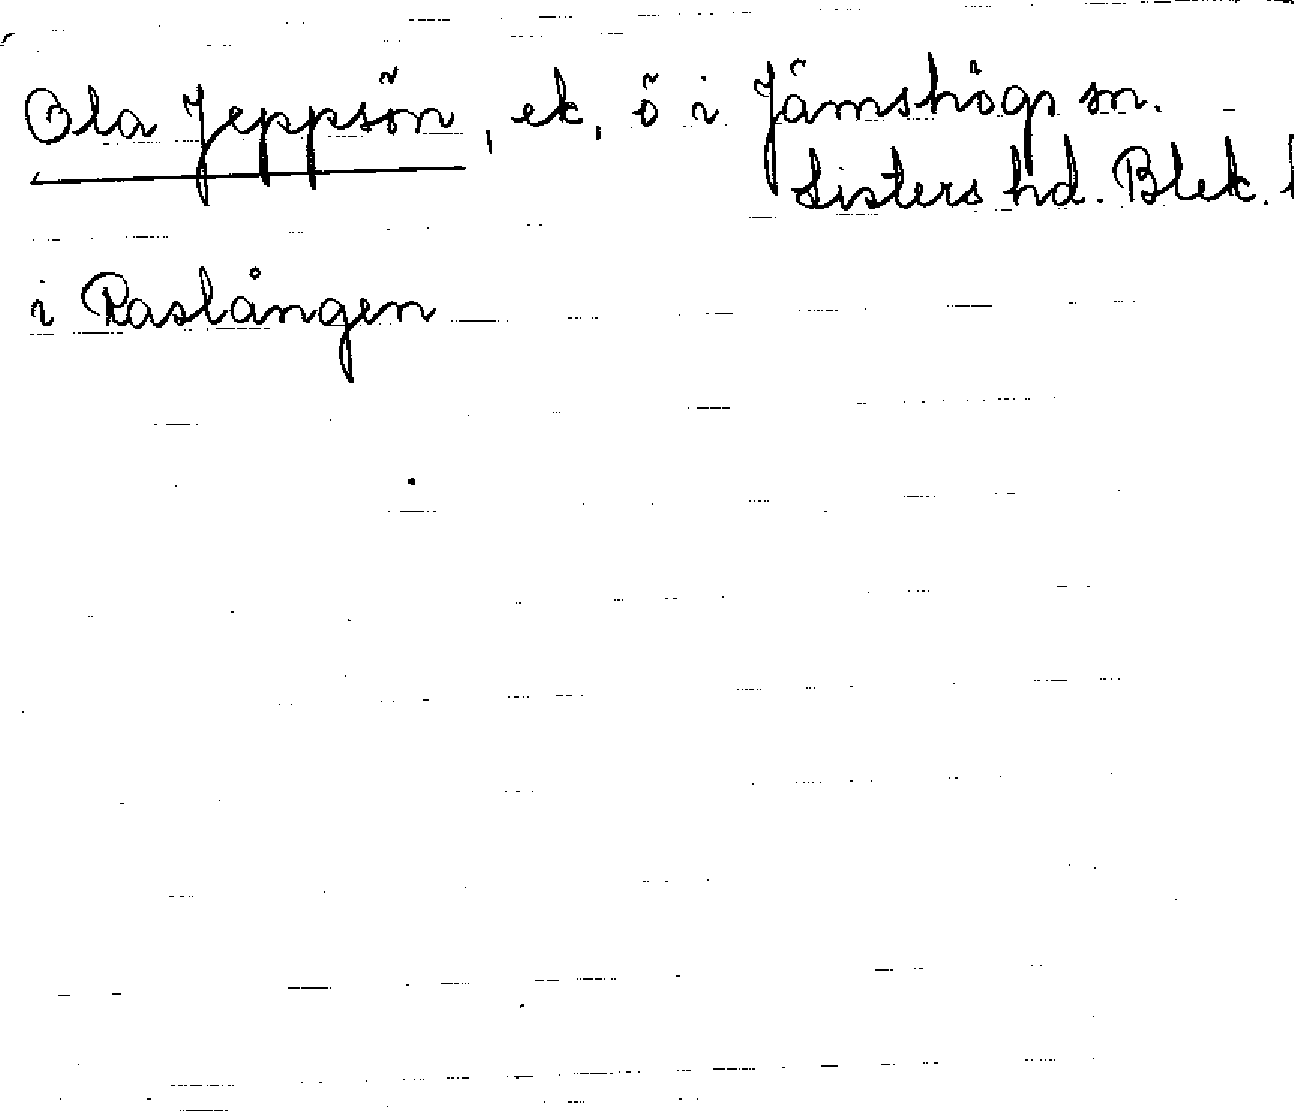 Ola Jeppsön, ek. ö i Jämshögs sn.
Listers hd. Blek. l
i Raslången